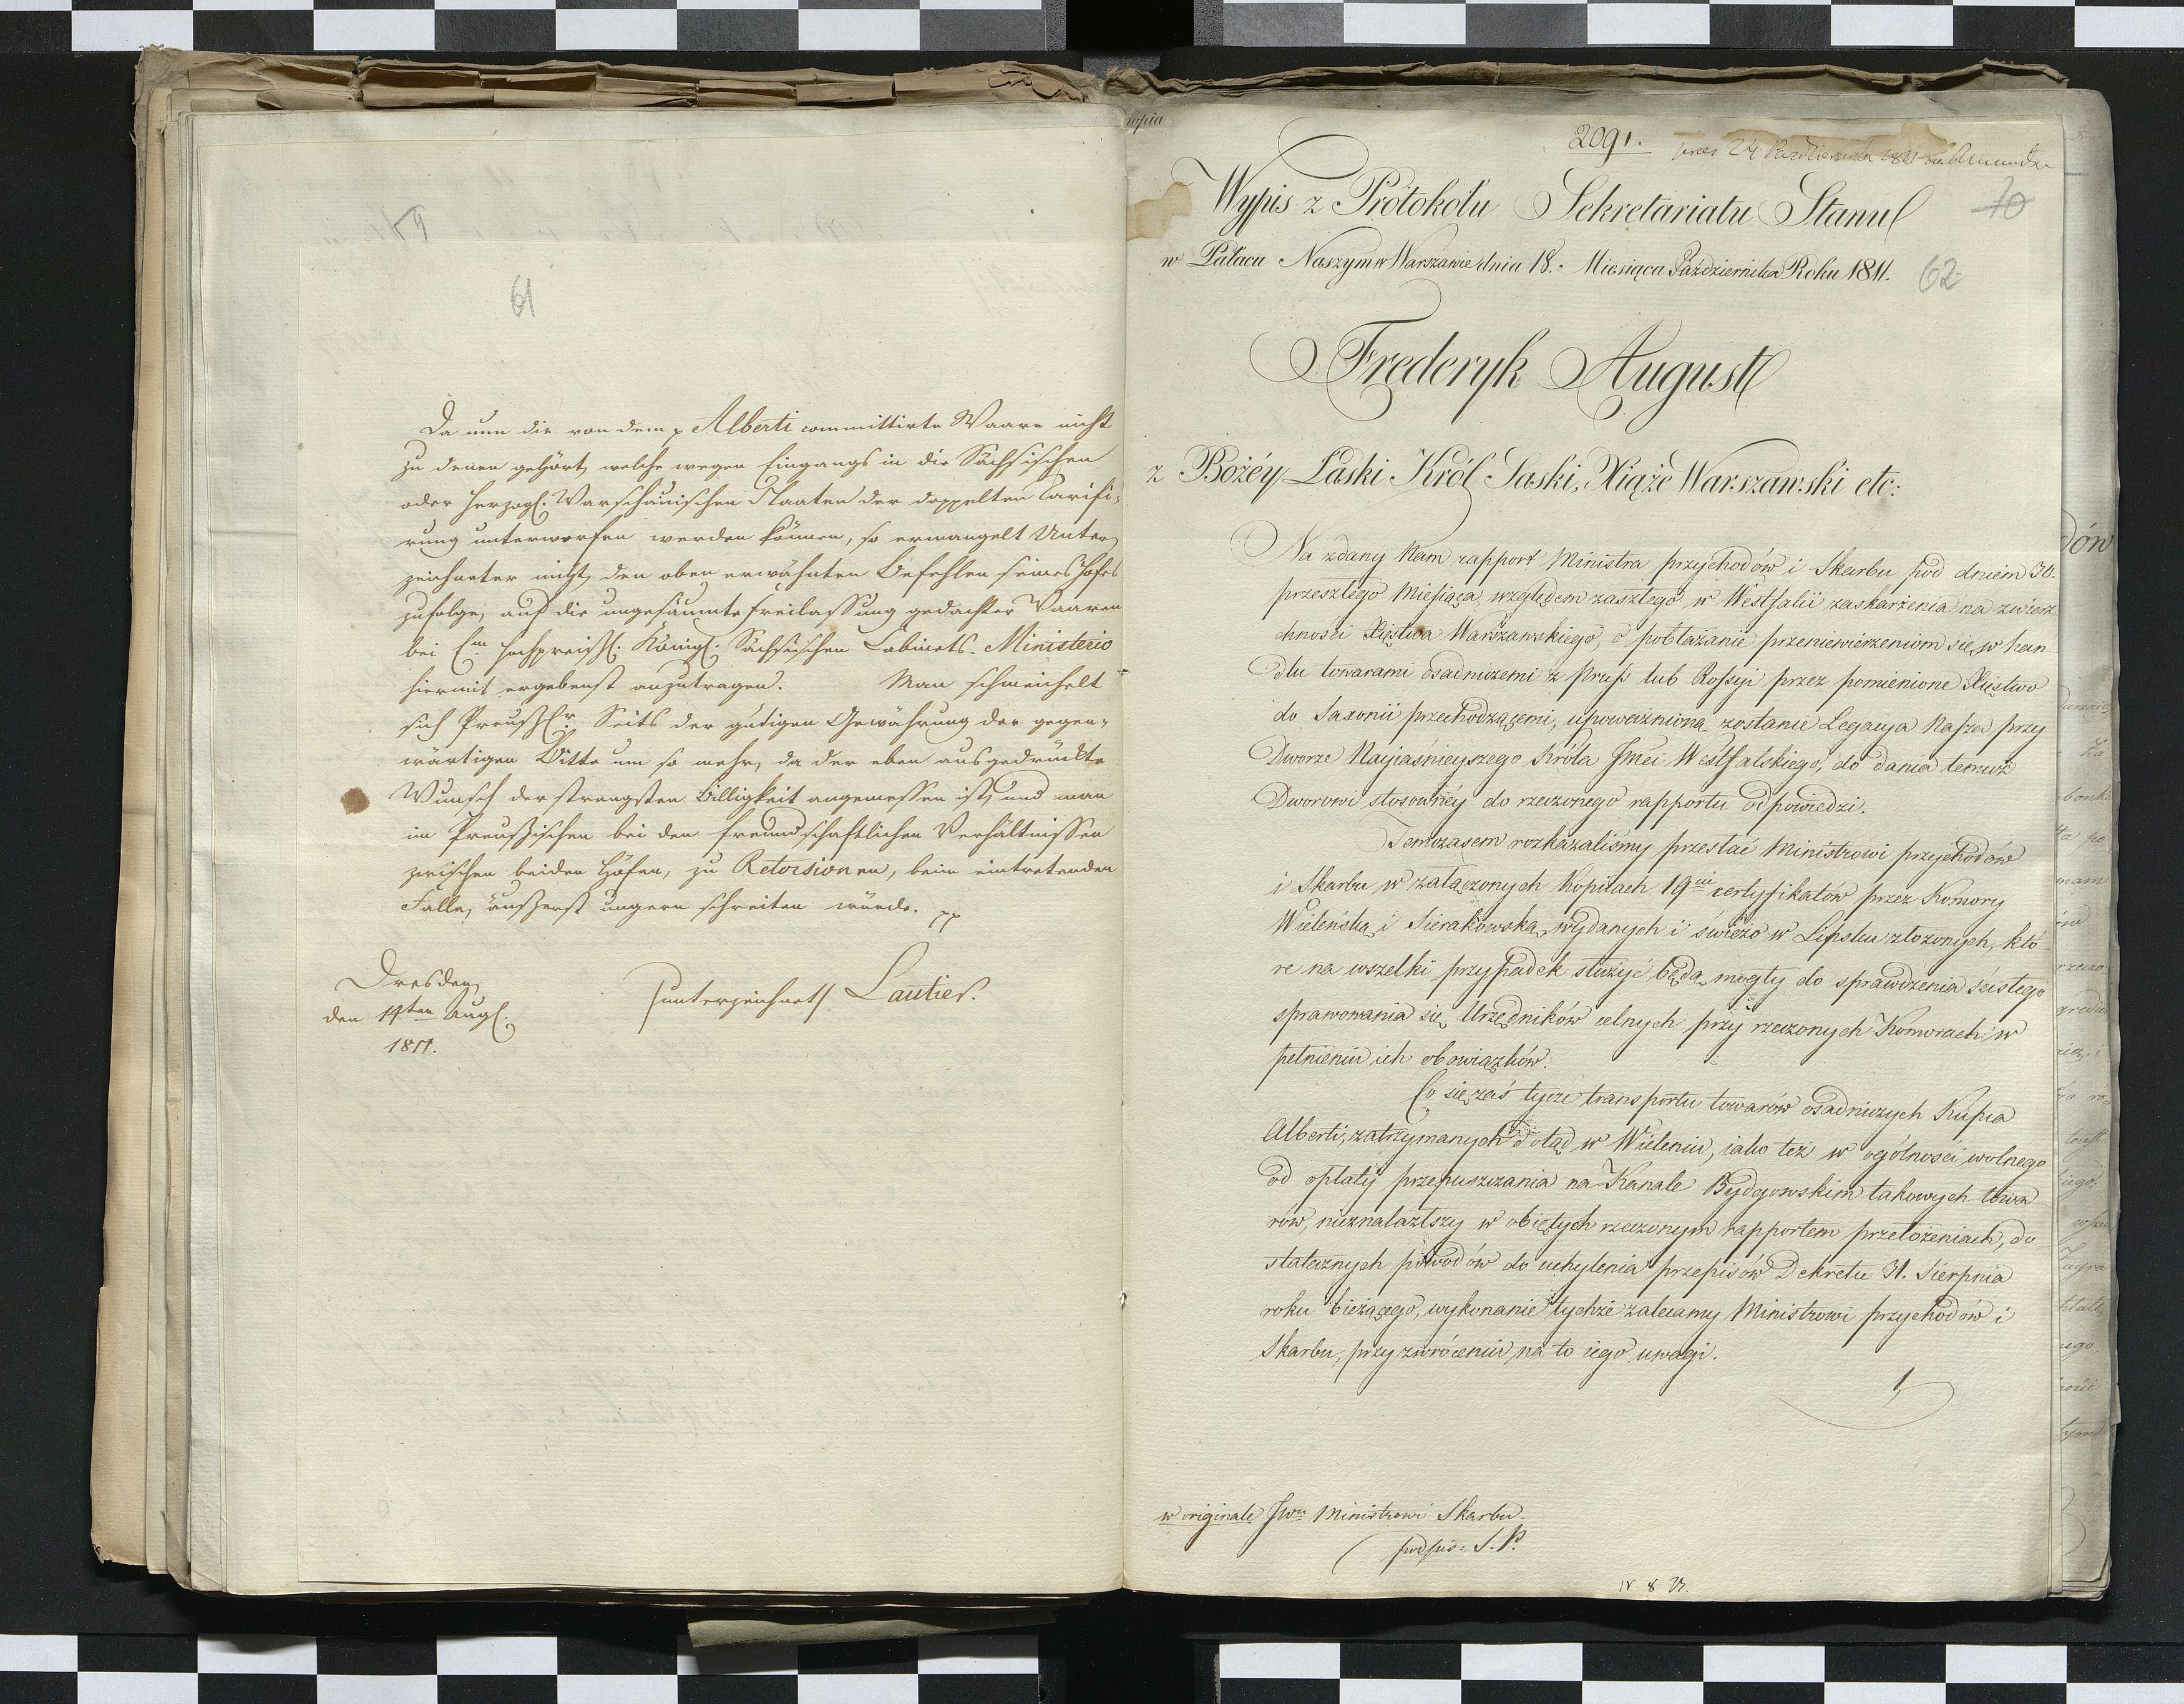 61
Da nun die von dem p Alberti committirte Waare nicht
zu denen gehört, welche wegen Eingangs in die Sächsischen
oder Herzogl: Warschauischen Staaten der doppelten Tarifi-
rung unterworfen werden können, so ermangelt Unter-
zeichneter nicht, den oben erwähnten Befehlen seines Hofes
zufolge, auf die ungesäumte Freilassung gedachter Waaren
bei Em hochpreißl: Königl: Sächsischen Cabinets-Ministerio
hiermit ergebenst anzutragen. Man schmeichelt
sich Preußr Seits der gütigen Gewährung der gegen-
wärtigen Bitte um so mehr, da der eben ausgedrückte
Wunsch der strengsten Billigkeit angemessen ist, und man
im Preußischen bei den freundschaftlichen Verhältnissen
zwischen beiden Höfen, zu Retorsionen, beim eintretenden
Falle, äußerst ungern schreiten würde. pp
Dresden,
den 14ten Aug.
1811.
(unterzeichnet) Lautier.
copia
2091.
24 Października 1811
70
Wypis z Protokołu Sekretariatu Stanu
w Pałacu Naszym w Warszawie dnia 18. Miesiąca Października Roku 1811.
62
Frederyk August
z Bożéy Łaski Król Saski, Xiąże Warszawski etc:
Na zdany Nam rapport Ministra przychodów i Skarbu pod dniem 30.
przeszłego Miesiąca, względem zaszłego w Westfalii zaskarżenia na zwierz
chności Xięstwa Warszawskiego, o pobłażanie przeniewierzeniom się w han
dlu towarami osadniczemi z Pruss lub Rossyi przez pomienione Xięstwo
do Saxonii przechodzącemi, upoważnioną zostanie Legacya Nasza przy
Dworze Nayiaśnieyszego Króla Jmci Westfalskiego, do dania temuż
Dworowi stosownéy do rzeczonego rapportu odpowiedzi.
Temczasem rozkazaliśmy przesłać Ministrowi przychodów
i Skarbu w załączonych Kopiiach 19 certyfikatów przez Komory
Wieleńską i Sierakowską wydanych i świeżo w Lipsku złożonych, któ-
re na wszelki przypadek służyć będą mogły do sprawdzenia ścisłego
sprawowania się Urzędników celnych przy rzeczonych Komorach w
pełnieniu ich obowiązków.
Co się zaś tycze transportu towarów osadniczych Kupca
Alberti, zatrzymanych dotąd w Wieleniu, iako też w ogólności wolnego
od opłaty przepuszczania na Kanale Bydgowskim takowych towa
rów, nieznalazłszy w obiętych rzeczonym rapportem przełożeniach, do
statecznych powodów do uchylenia przepisów Dekretu 31. Sierpnia
roku bieżącego, wykonanie tychże zalecamy Ministrowi przychodów i
Skarbu, przy zwróceniu na to iego uwagi.
1,
w originale Jwu Ministrowi Skarbu.
podpis: S. P.